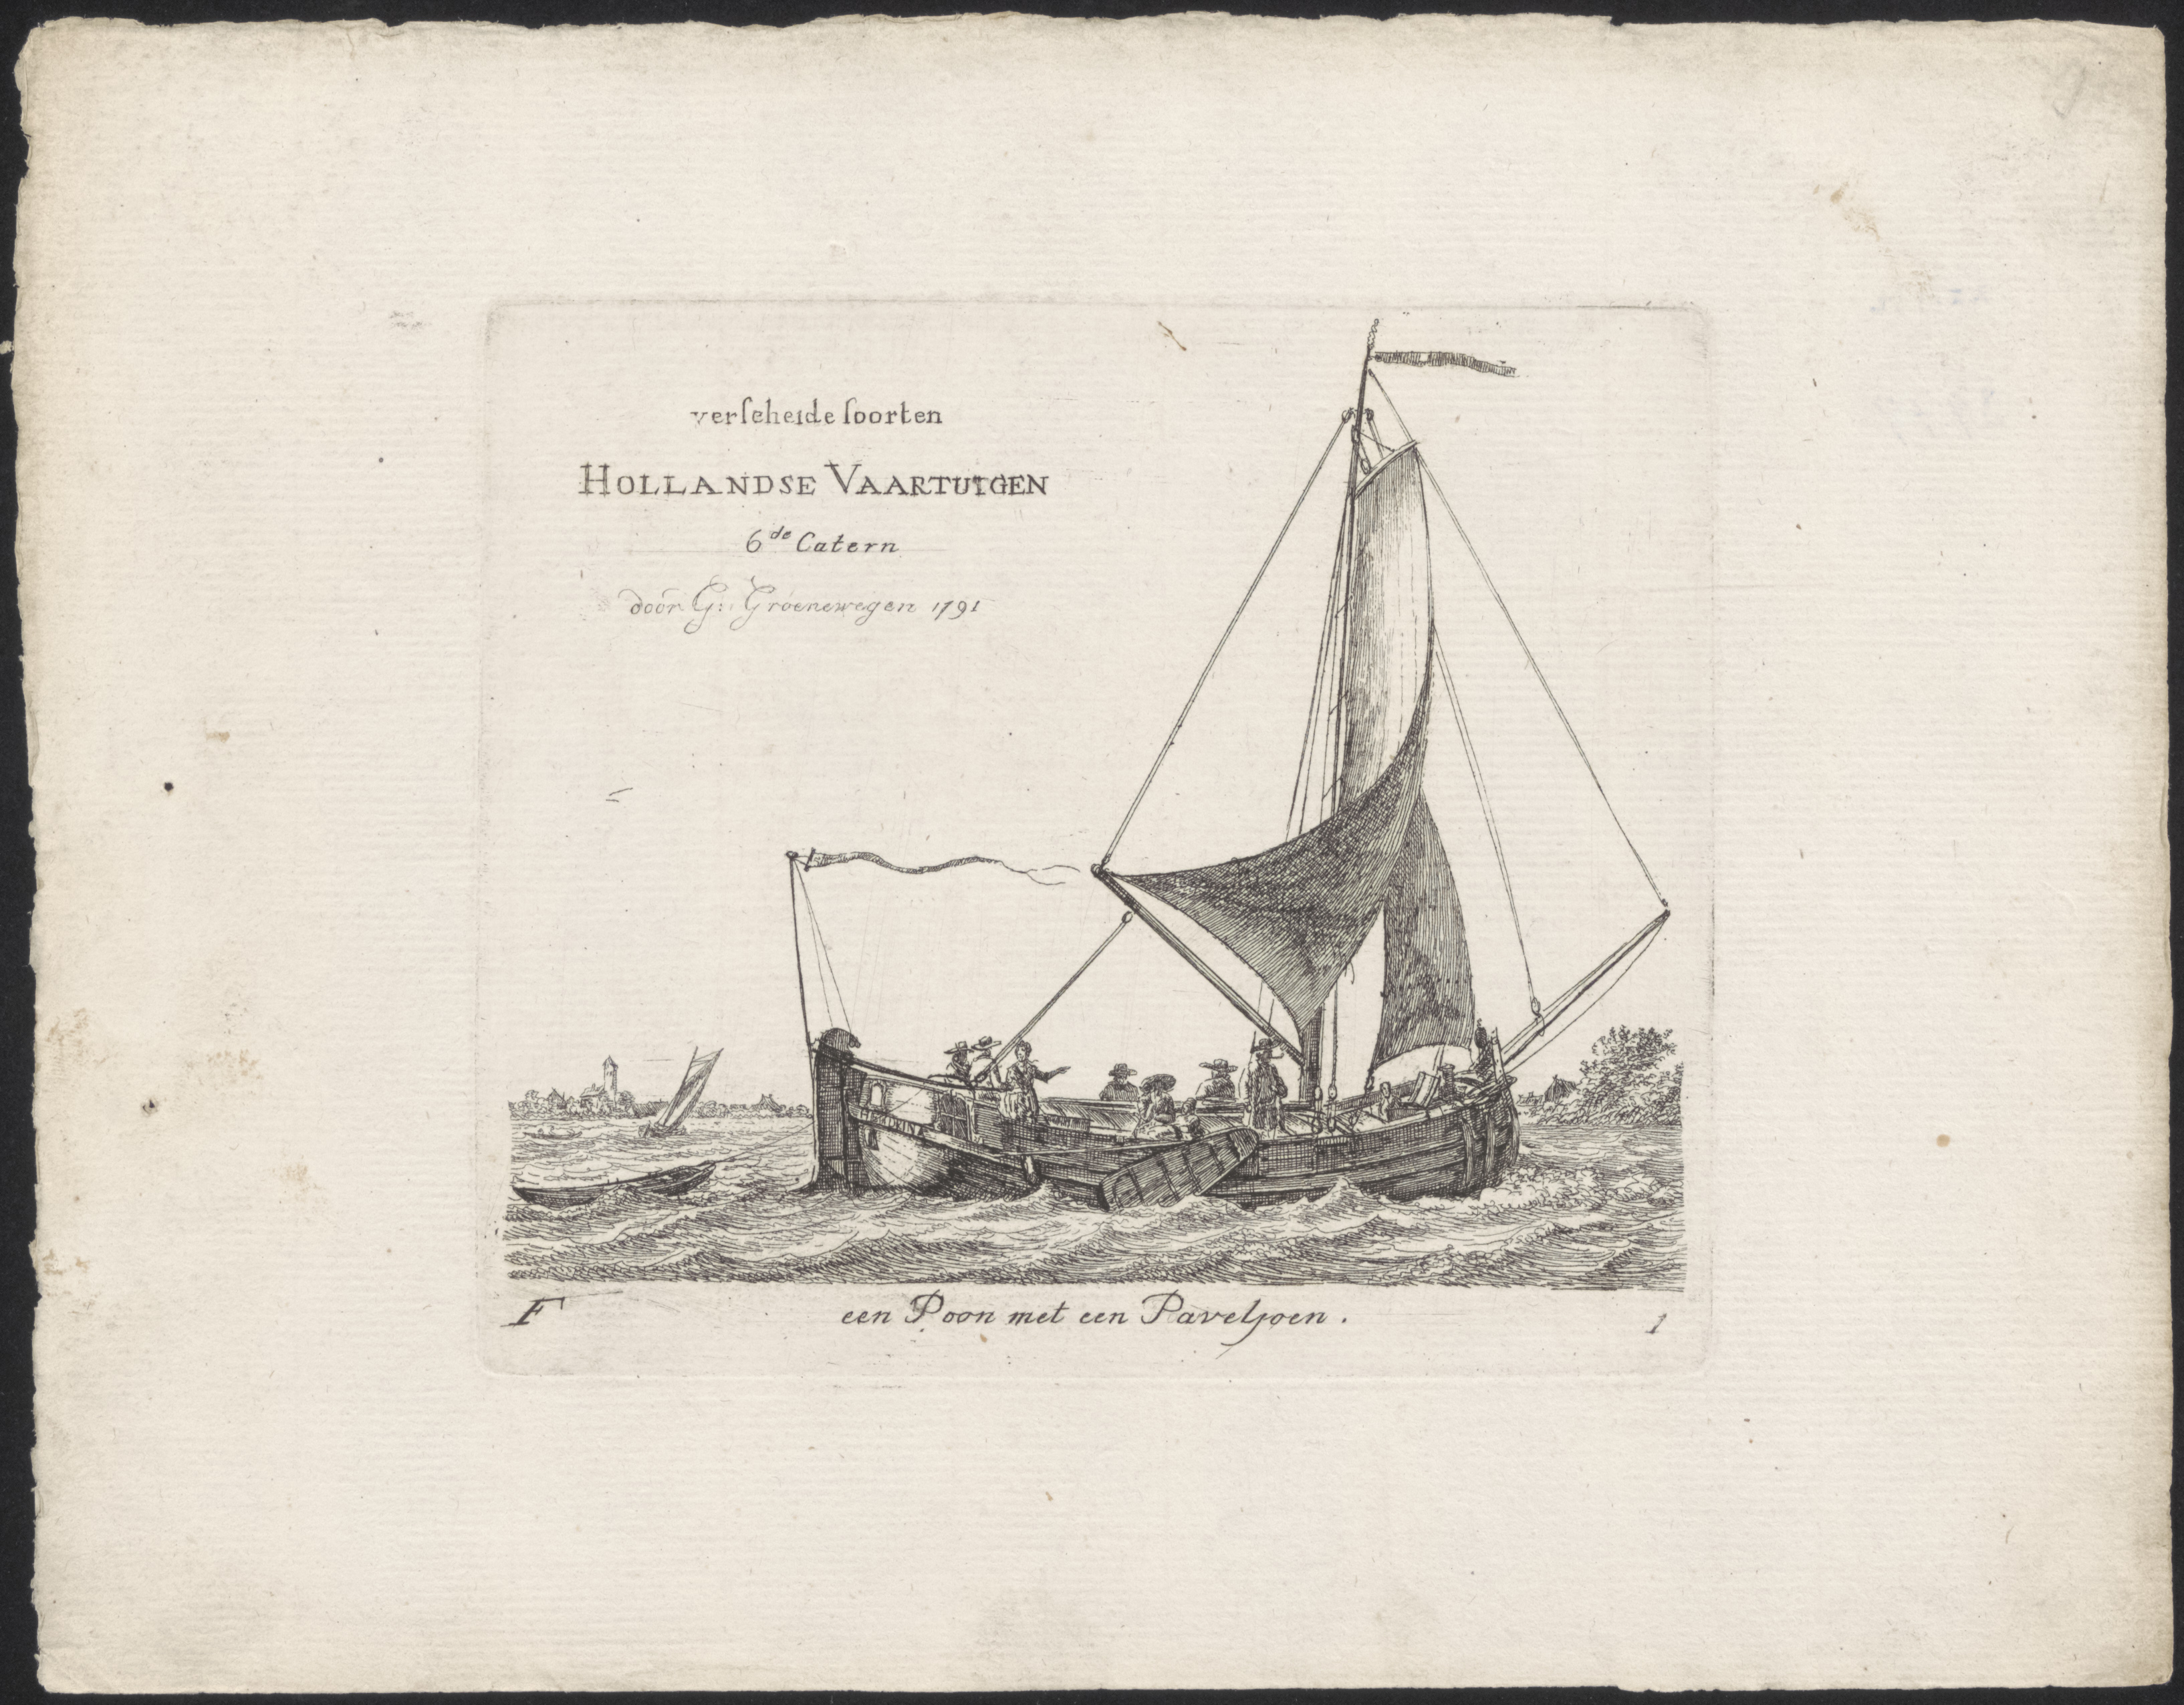 verſcheide ſoorten
HOLLANDSE VAARTUIGEN
6de Catern
door G: Groenewegen 1791
F
een Poon met een Paveljoen.
1